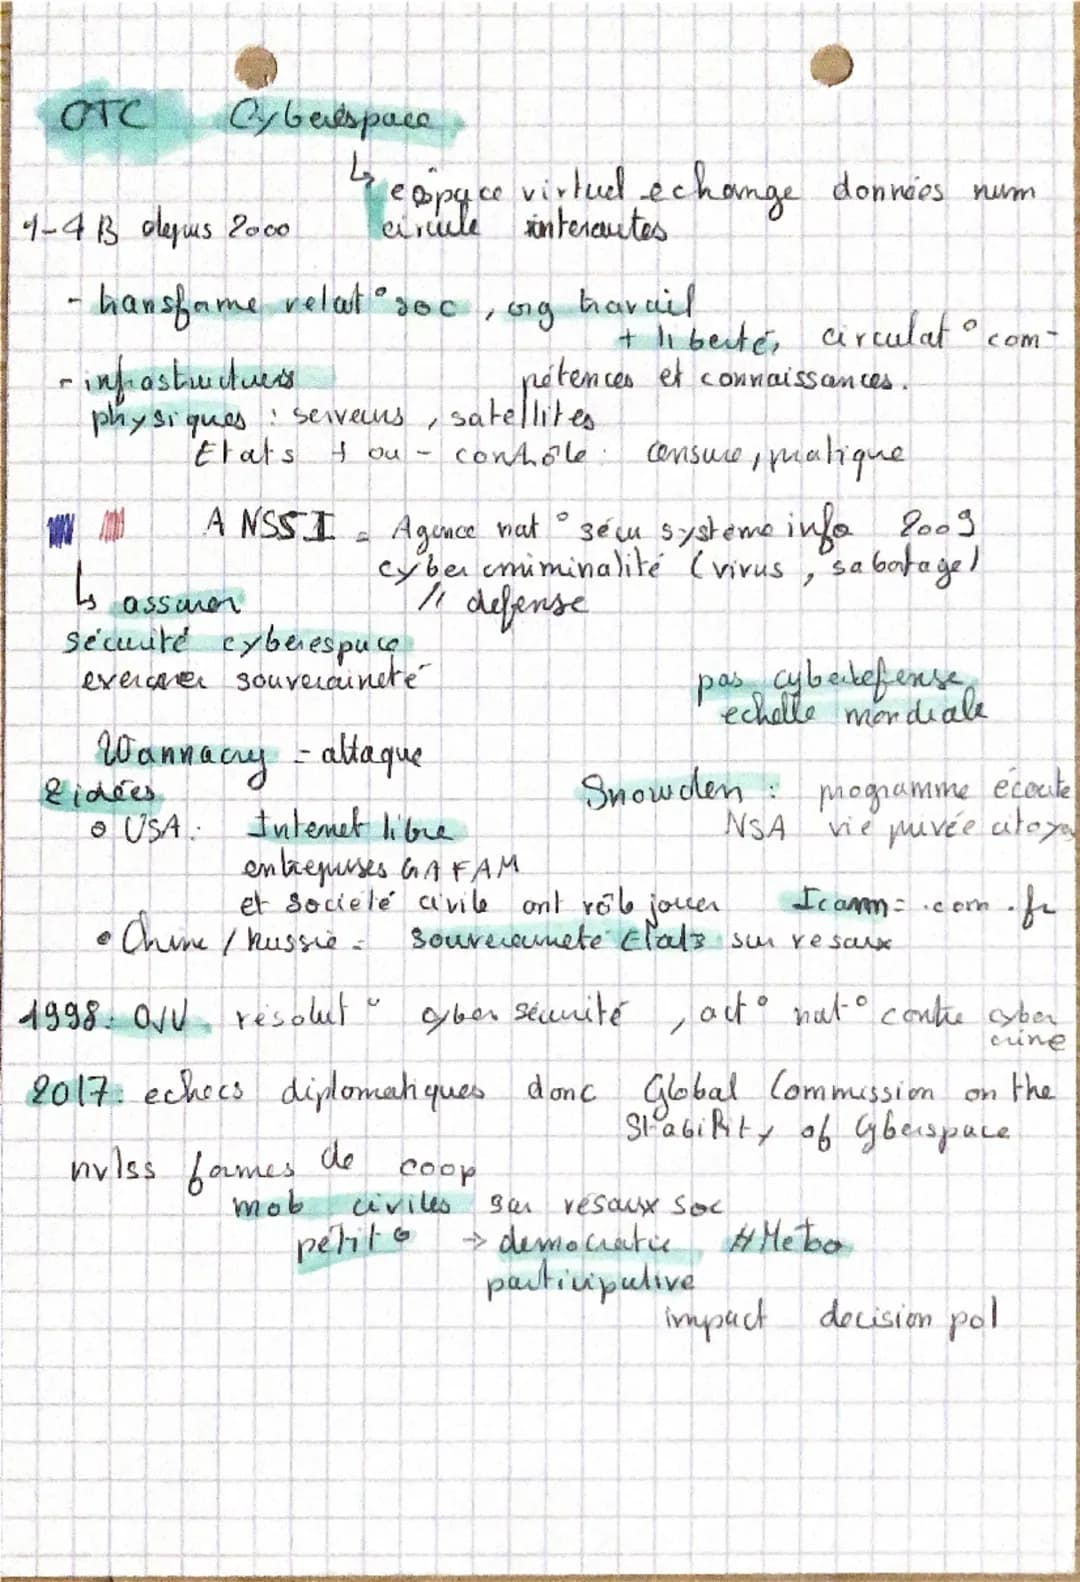 OTC Cyberespace
↳ espace virtuel echange données num
1-4 B depuis 2000 circule internautes
- transforme relat° soc, org travail
+ liberté, circulat° com-
- infrastuctures pétences et connaissances.
physiques : serveurs, satellites
Etats + ou - contrôle : censure, pratique
ANSSI = Agence nat° sécu système info 2009
cyber criminalité (virus, sabotage)
↳ assurer // defense
sécurité cyberespace
exercer souveraineté
pas cyberdefense
echelle mondiale
Wannacry = attaque
2 idées
Snowden : programme écoute
o USA : Internet libre NSA vie privée citoyen
entreprises GAFAM
et société civile ont rôle jouer Icann = .com .fr
• Chine / Russie = souveraineté Etats sur resaux
1998 : ONU résolut° cyber sécurité, act° nat° contre cyber
crime
2017 : echecs diplomatiques donc Global Commission on the
Stability of Cyberspace
nvlss formes de coop
mob civiles sur résaux soc
petit° → democratie #Metoo
participative
impact decision pol